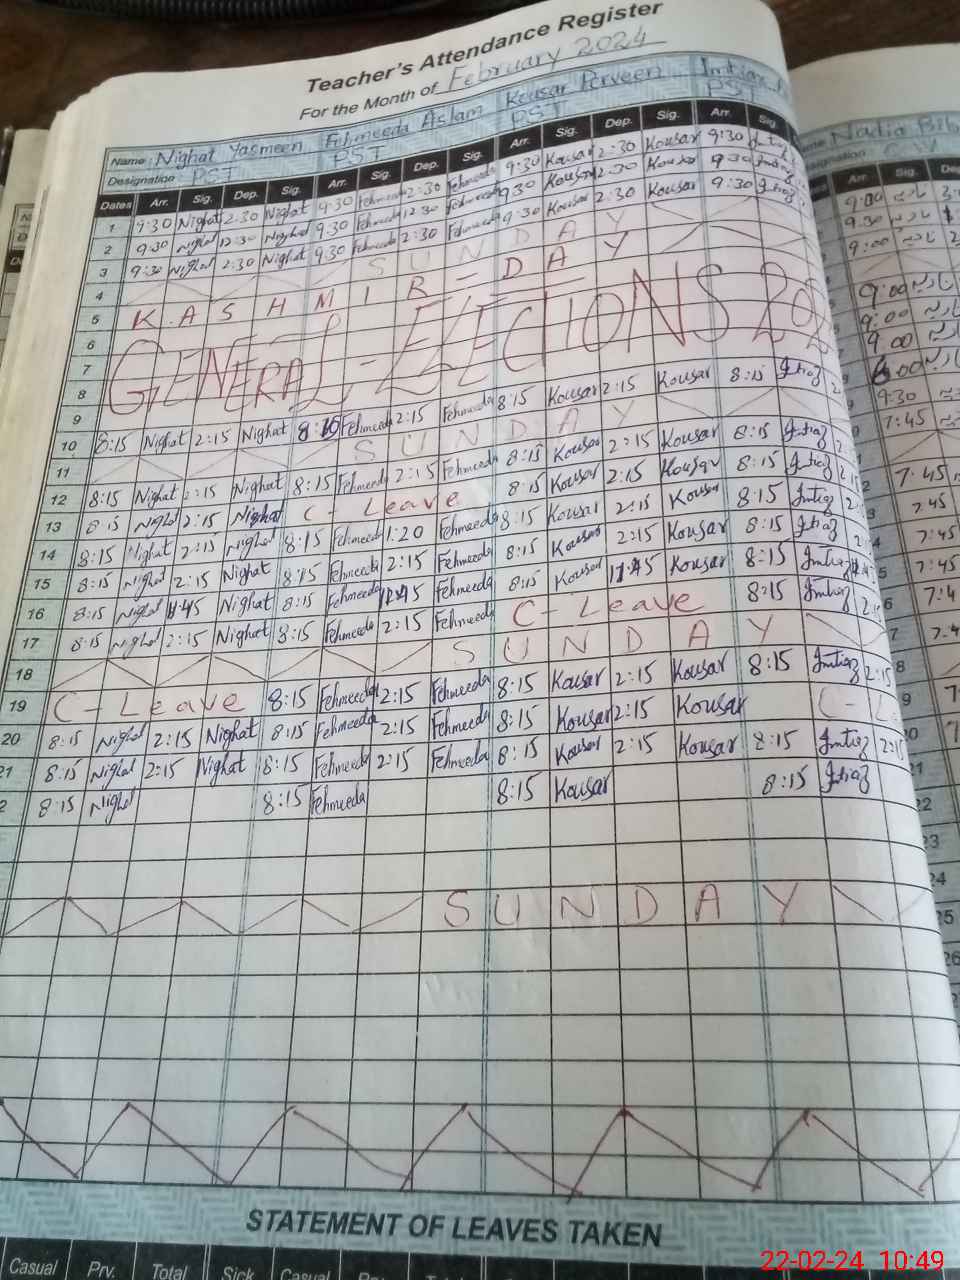 Teacher's Attendance Register
For the Month of February 2024
Name: Nighat Yasmeen Fehmeeda Aslam Kousar Perveen Imtiaz
Designation: PST PST PST PST
Dates Arr. Sig. Dep. Sig. Arr. Sig. Dep. Sig. Arr. Sig. Dep. Sig. Arr. Sig.
1 9:30 Nighat 2:30 Nighat 9:30 Fehmeeda 2:30 Fehmeeda 9:30 Kousar 2:30 Kousar 9:30 Imtiaz
2 9:30 Nighat 12:30 Nighat 9:30 Fehmeeda 12:30 Fehmeeda 9:30 Kousar 2:30 Kousar 9:30 Imtiaz
3 9:30 Nighat 2:30 Nighat 9:30 Fehmeeda 2:30 Fehmeeda 9:30 Kousar 2:30 Kousar 9:30 Imtiaz
4 SUNDAY
5 KASHMIR-DAY
6
7 GENERAL-ELECTIONS 202
8
9
10 8:15 Nighat 2:15 Nighat 8:10 Fehmeeda 2:15 Fehmeeda 8:15 Kousar 2:15 Kousar 8:15 Imtiaz
11 SUNDAY
12 8:15 Nighat 2:15 Nighat 8:15 Fehmeeda 2:15 Fehmeeda 8:15 Kousar 2:15 Kousar 8:15 Imtiaz
13 8:15 Nighat 2:15 Nighat C-Leave 8:15 Kousar 2:15 Kousar 8:15 Imtiaz
14 8:15 Nighat 2:15 Nighat 8:15 Fehmeeda 1:20 Fehmeeda 8:15 Kousar 2:15 Kousar 8:15 Imtiaz
15 8:15 Nighat 2:15 Nighat 8:15 Fehmeeda 2:15 Fehmeeda 8:15 Kousar 2:15 Kousar 8:15 Imtiaz
16 8:15 Nighat 11:45 Nighat 8:15 Fehmeeda 11:45 Fehmeeda 8:15 Kousar 11:45 Kousar 8:15 Imtiaz
17 8:15 Nighat 2:15 Nighat 8:15 Fehmeeda 2:15 Fehmeeda C-Leave 8:15 Imtiaz
18 SUNDAY
19 C-Leave 8:15 Fehmeeda 2:15 Fehmeeda 8:15 Kousar 2:15 Kousar 8:15 Imtiaz 2:15
20 8:15 Nighat 2:15 Nighat 8:15 Fehmeeda 2:15 Fehmeeda 8:15 Kousar 2:15 Kousar C-L
21 8:15 Nighat 2:15 Nighat 8:15 Fehmeeda 2:15 Fehmeeda 8:15 Kousar 2:15 Kousar 8:15 Imtiaz 2:15
2 8:15 Nighat 8:15 Fehmeeda 8:15 Kousar 8:15 Imtiaz
SUNDAY
STATEMENT OF LEAVES TAKEN
Casual Prv. Total Sick Casual
Nadia
Arr. Sig.
9:00
9:30
9:00
9:00
9:00
9:00
9:30
7:45
7:45
7:45
7:45
7:45
22-02-24 10:49